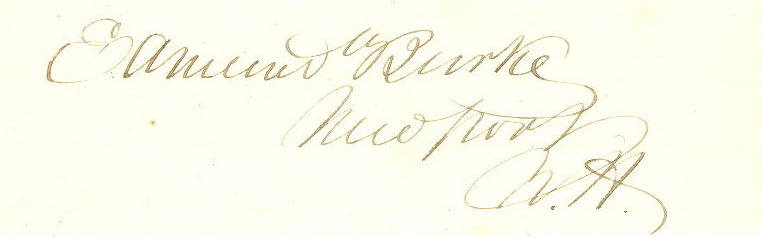 Edmund Burke
Newport
N.H.